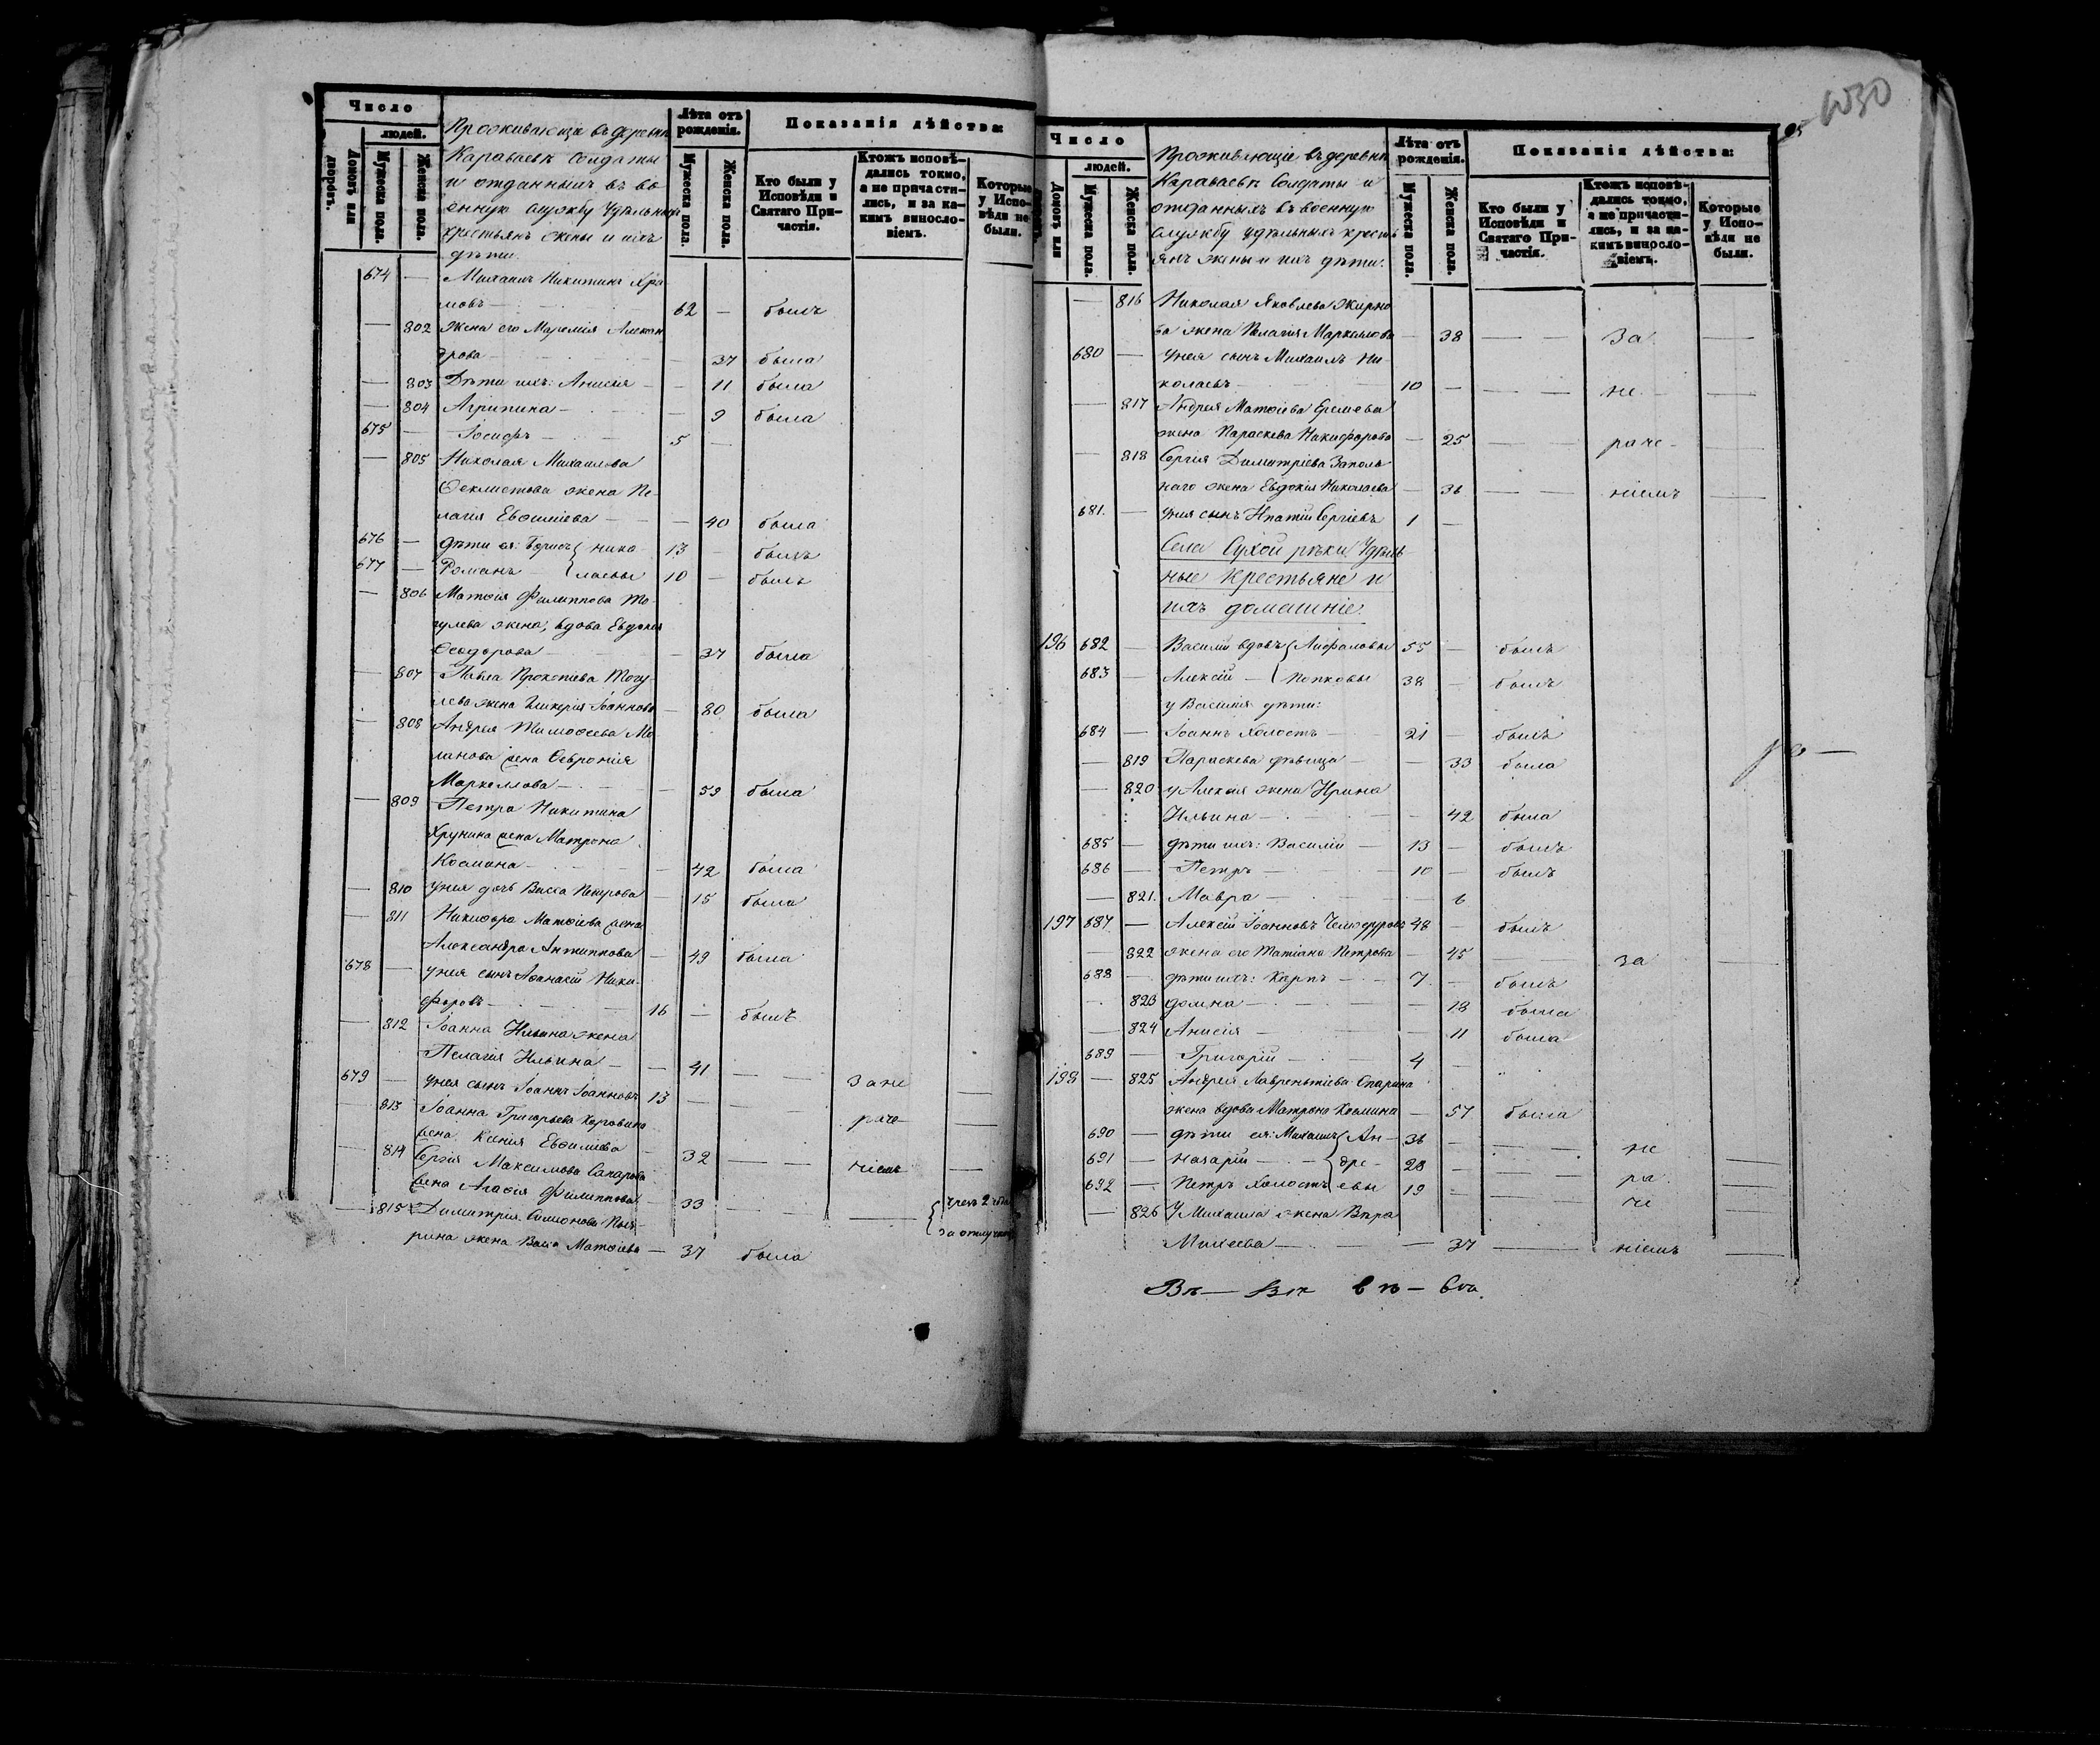 Число
людей.
Домовъ или дворовъ.
Мужеска пола.
Женска пола.
Проживающіе въ деревнѣ
Караваевкѣ Солдаты
и отданныхъ въ во
енную службу Удѣльныхъ
крестьянъ жены и ихъ
дѣти.
Лѣта отъ рожденія.
Мужеска пола.
Женска пола.
Показанія дѣйства:
Кто были у Исповѣди и Святаго При-
частія.
Ктожъ исповѣ-
дались токмо,
а не причасти-
лись, и за ка-
кимъ виносло-
віемъ.
Которые
у Испо-
вѣди не
были.
674 — Михаилъ Никитинъ Хра
мовъ — 62 — былъ
— 802 жена его Марѳмія Алексан
дрова — 37 была
— 803 Дѣти ихъ: Анисія — — 11 была
— 804 Агрипина — — 9 была
675 — Іосифъ — 5 —
— 805 Николая Михаилова
Ѳеклистова жена Пе-
лагія Евѳиміева — — 40 была
676 — дѣти ея: Борисъ { Нико 13 — былъ
677 — Романъ — { лаевы 10 — былъ
— 806 Матѳія Филиппова Мо-
гулева жена, вдова Евдокія
Ѳеодорова — — 37 была
— 807 Павла Прокопіева Могу
лева жена Гликерія Іоаннова — 80 была
— 808 Андрея Тимоѳеева Мо
ланова жена Ѳеѵронія
Маркеллова — — 59 была
— 809 Петра Никитина
Хрунина жена Матрона
Космина — — 42 была
— 810 у нея дочь Васса Петрова — 15 была
— 811 Никифора Матѳіева жена
Александра Антиппова — 49 была
678 — у нея сынъ Аѳанасій Ники-
форовъ — 16 — былъ
— 812 Іоанна Ильина жена
Пелагія Ильина — — 41 зане
679 — у нея сынъ Іоаннъ Іоанновъ 13 —
— 813 Іоанна Григорьева Коровина раче
жена Ксенія Евѳиміева — 32 — — ніемъ —
— 814 Сергія Максимова Сапарова
жена Агаѳія Филиппова — 33 — — — { чрезъ 2 года
— 815 Димитрія Симонова Пын- за отлучкою
рина жена Васса Матѳіева — 37 была
1030
Число
людей.
Домовъ или
Мужеска пола.
Женска пола.
Проживающіе въ деревнѣ
Караваевкѣ Солдаты и
отданныхъ въ военную
службу удѣльныхъ кресть
янъ жены и ихъ дѣти.
Лѣта отъ рожденія.
Мужеска пола.
Женска пола.
Показанія дѣйства:
Кто были у
Исповѣди и
Святаго При-
частія.
Ктожъ исповѣ-
дались токмо,
а не причасти-
лись, и за ка-
кимъ виносло-
віемъ.
Которые
у Испо-
вѣди не
были.
— 816 Николая Яковлева Жирно
ва жена Пелагія Маркеллова — 38 — — За
680 — у нея сынъ Михаилъ Ни-
колаевъ — 10 — — — не —
— 817 Андрея Матѳіева Еремеева
жена Параскева Никифорова — 25 — — раче —
— 818 Сергія Димитріева Заполь
наго жена Евдокія Николаева — 36 — — ніемъ —
681. — у нея сынъ Ипатій Сергіевъ 1 —
Села Сухой рѣки Удѣль
ные Крестьяне и
ихъ домашніе.
196 682 — Василій вдовъ { Лифановы 55 — былъ
683 — Алексій — { Попковы 38 — былъ
у Василія дѣти:
684 — Іоаннъ Холостъ — 21 — былъ
— 819 Параскева дѣвица — — 33 была
— 820 у Алексія жена Ирина
Ильина — — 42 была
685 — дѣти ихъ: Василій — 13 — былъ
686 — Петръ — 10 — былъ
— 821. Мавра — — 6
197 687 — Алексій Іоанновъ Чемодуровъ 48 — былъ
— 822 жена его Татіана Петрова — 45 — за
688 — дѣти ихъ: Карпъ — 7 — былъ
— 823 домна — — 18 была
— 824 Анисія — 11 была
689 — Григорій — 4 —
198 — 825 Андрея Лаврентіева Опарина
жена вдова Матрона Космина — 57 была
690 — дѣти ея: Михаилъ { Ан- 36 — — не
691 — Назарій — { дре- 28 — — ра
692 — Петръ Холостъ { евы 19 — — че
— 826 У Михаила жена Вѣра
Михеева — — 37 — ніемъ —